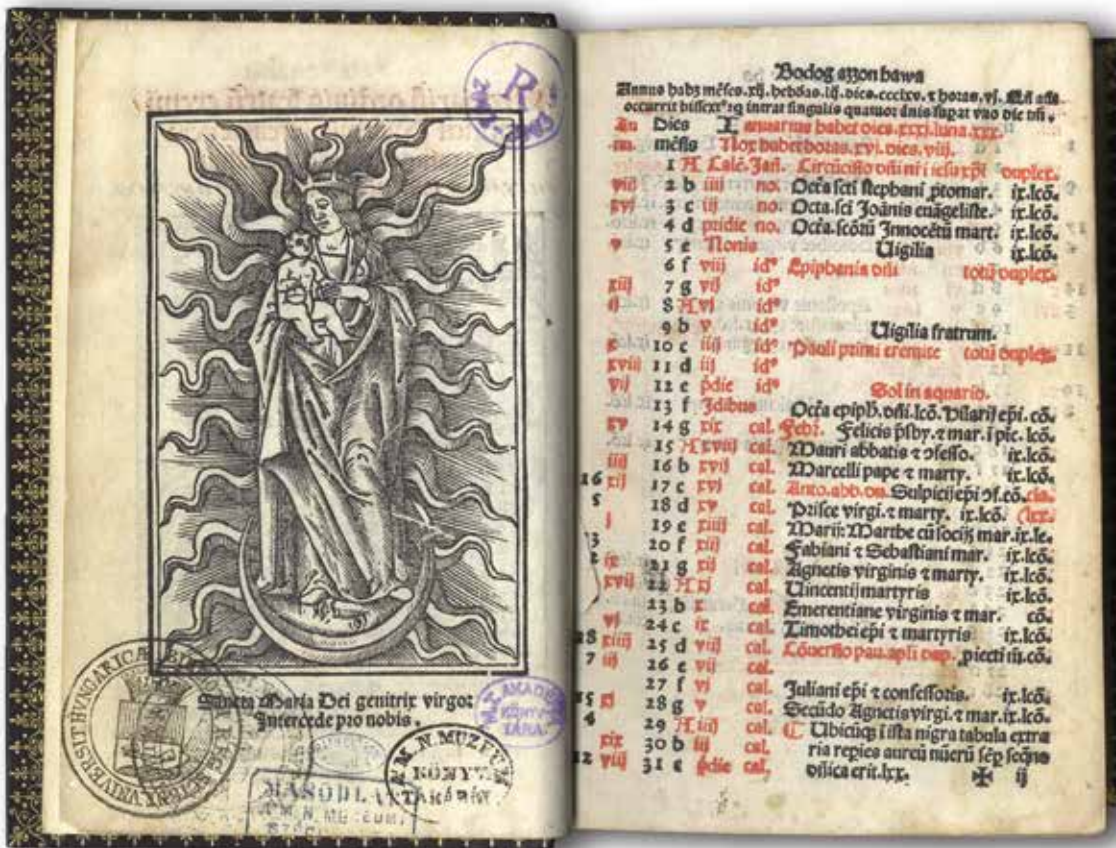 Sancta Maria Dei genitrix virgo:
Intercede pro nobis.
R
M. N. MUZEUM
KÖNYV
TÁRA.
MÁSODL
M. N. MUZEUM,
Bodog azzon hawa
Annus habz mēses .xij. hebdōas .lij. dies .ccclxv. ⁊ horas .vj.
occurrit bissext⁹ intrat singulis quatuor ānis
An Dies Ianuarius habet dies .xxxi. luna .xxx.
ni mēsis Nox habet horas .xvi. dies .viij.
1 A Calē. Jañ. Circūcisio dñi nī iesu xp̄i duplex.
viij 2 b iiij no. Octa scti stephani ptomar. ix.lcō.
xvj 3 c iij no. Octa. sci Joānis euāgeliste. ix.lcō.
4 d pridie no. Octa. scōrū Innocētū mart. ix.lcō.
v 5 e Nonis Uigilia ix.lcō.
6 f viij id⁹ Epiphania dñi totū duplex.
xiij 7 g vij id⁹
ij 8 A vj id⁹
9 b v id⁹ Uigilia fratrum.
x 10 c iiij id⁹ Pauli primi eremite totū duplex.
xviij 11 d iij id⁹
vij 12 e pdie id⁹ Sol in aquario.
13 f Idibus Octa epiph. dñi.lcō. Hilarij epi. cō.
xv 14 g xix cal. Febr. Felicis psby. ⁊ mar. ī pic. lcō.
15 A xviij cal. Mauri abbatis ⁊ ɔfesso. ix.lcō.
iiij 16 b xvij cal. Marcelli pape ⁊ marty. ix.lcō.
16 xij 17 c xvj cal. Anto. abb. du. Sulpicij epi ɔf. cō.
5 18 d xv cal. Prisce virgi. ⁊ marty. ix.lcō. (lxx.
j 19 e xiiij cal. Marij: Marthe cū socijs mar. ix.le.
13 20 f xiij cal. Fabiani ⁊ Sebastiani mar. ix.lcō.
2 ix 21 g xij cal. Agnetis virginis ⁊ marty. ix.lcō.
xvij 22 A xj cal. Uincentij martyris ix.lcō.
23 b x cal. Emerentiane virginis ⁊ mar. cō.
vj 24 c ix cal. Timothei epi ⁊ martyris ix.lcō.
18 xiiij 25 d viij cal. Cōuersio pau. apli dup. piecti
7 iij 26 e vij cal.
27 f vj cal. Juliani epi ⁊ confessoris. ix.lcō.
15 xj 28 g v cal. Secūdo Agnetis virgi. ⁊ mar. ix.lcō.
4 29 A iiij cal. ⸿ Ubicūqȝ ī ista nigra tabula extra
xix 30 b iij cal. ria repies aureū nūerū sēp seqñs
12 viij 31 c pdie cal. dñica erit .lxx. ✠ ij